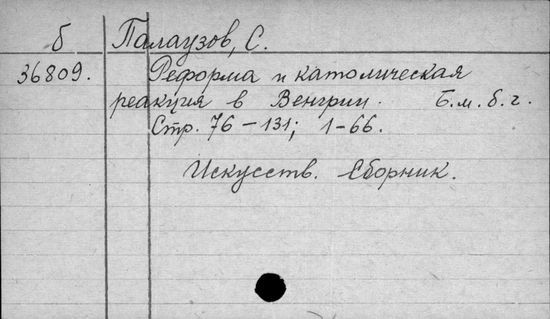 б Палаузов, С.
36809. Реформа и католическая
реакция в Венгрии. Б.м.б.г.
Стр. 76-131; 1-66.
Искусств. Сборник.